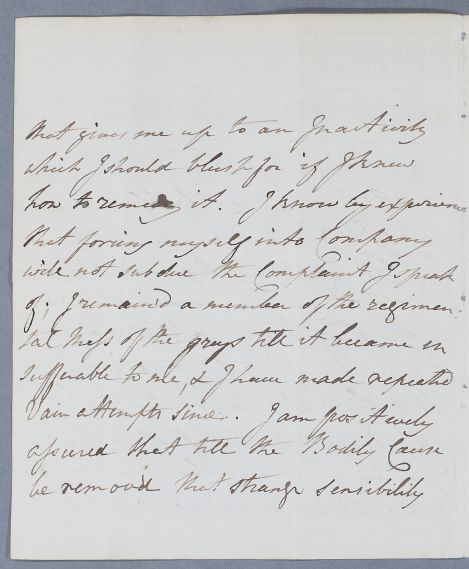 that gives me up to an Inactivity
which I should blush for if I knew
how to remedy it. I know by experience
that forcing myself into Company
will not subdue the Complaint I speak
of; I remain'd a member of the regimen-
tal Mess of the greys till it became in
sufferable to me, & I have made repeated
Vain attempts since. I am positively
assured that till the Bodily Cause
be remov'd that strange sensibility